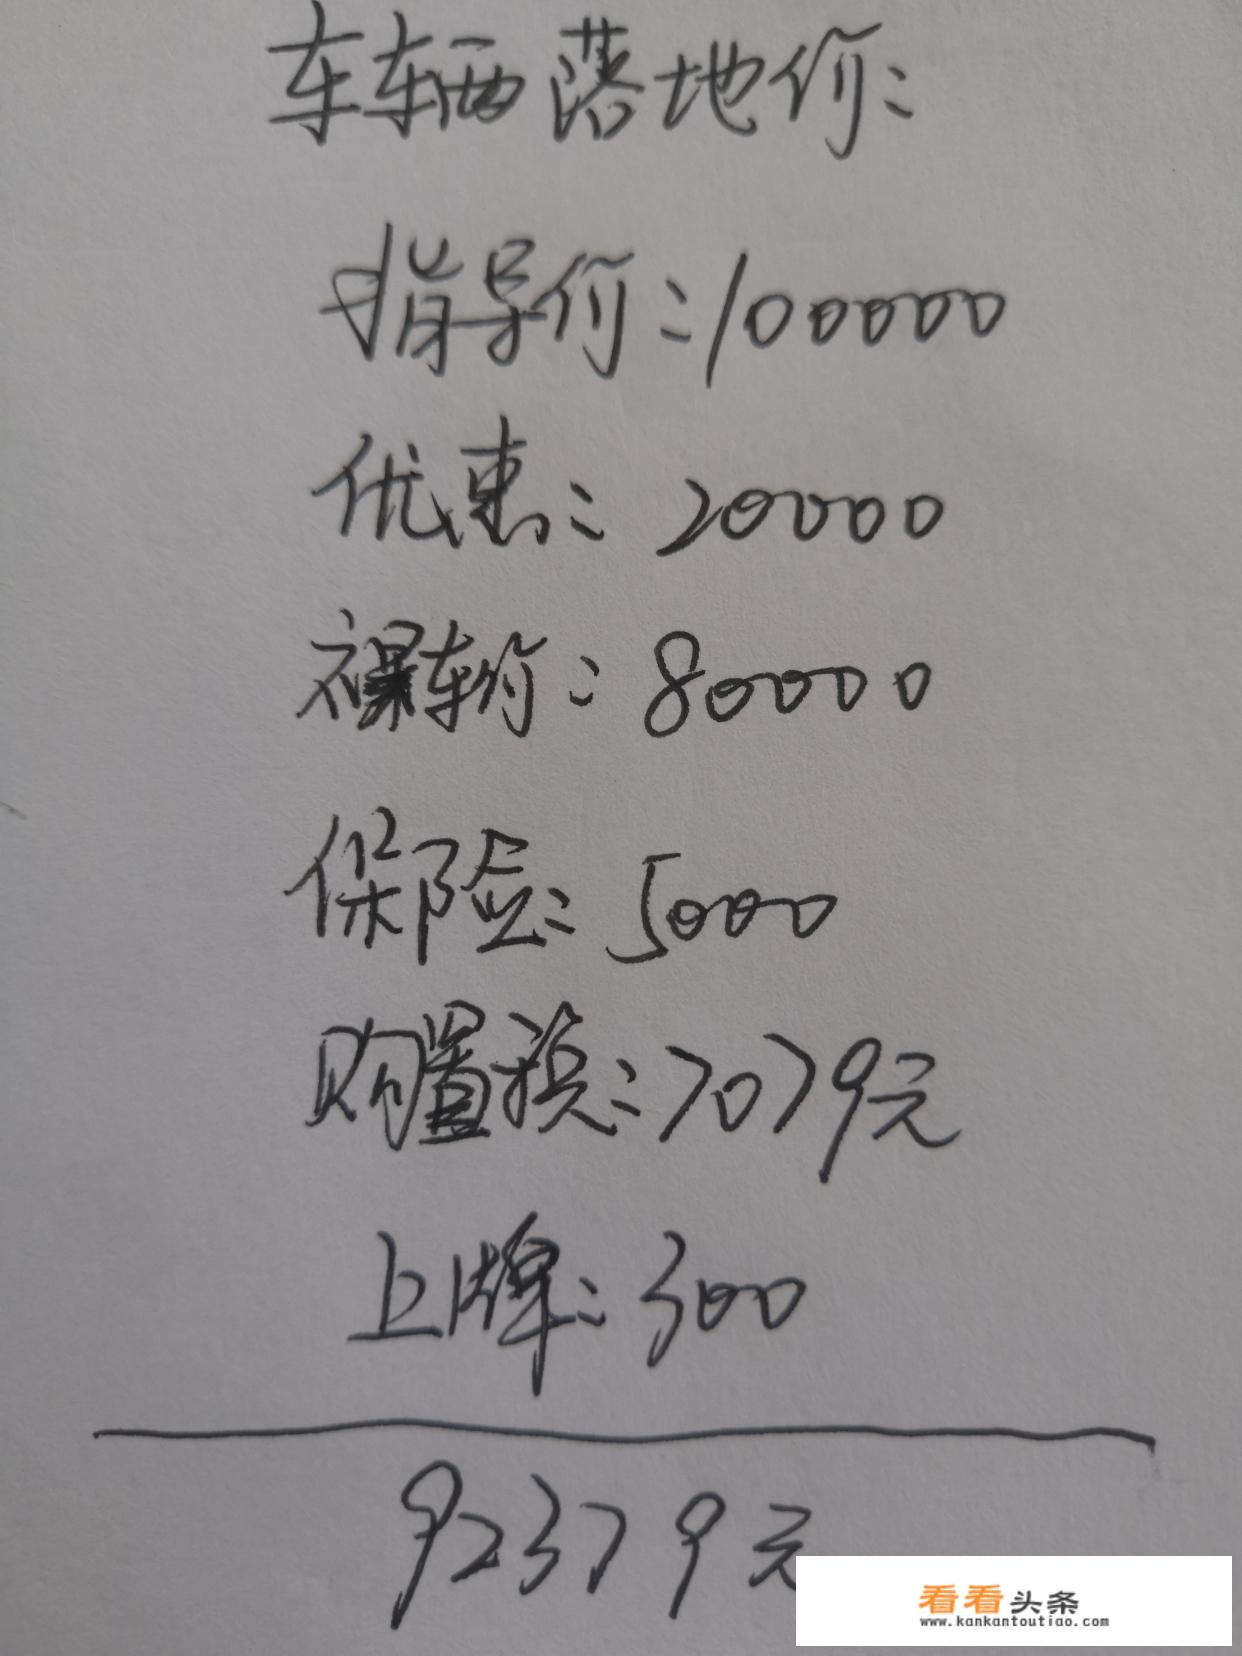 车辆落地价:
指导价:100000
优惠:20000
裸车价:80000
保险:5000
购置税:7079元
上牌:300
92379元
看看头条
www.kankantoutiao.com